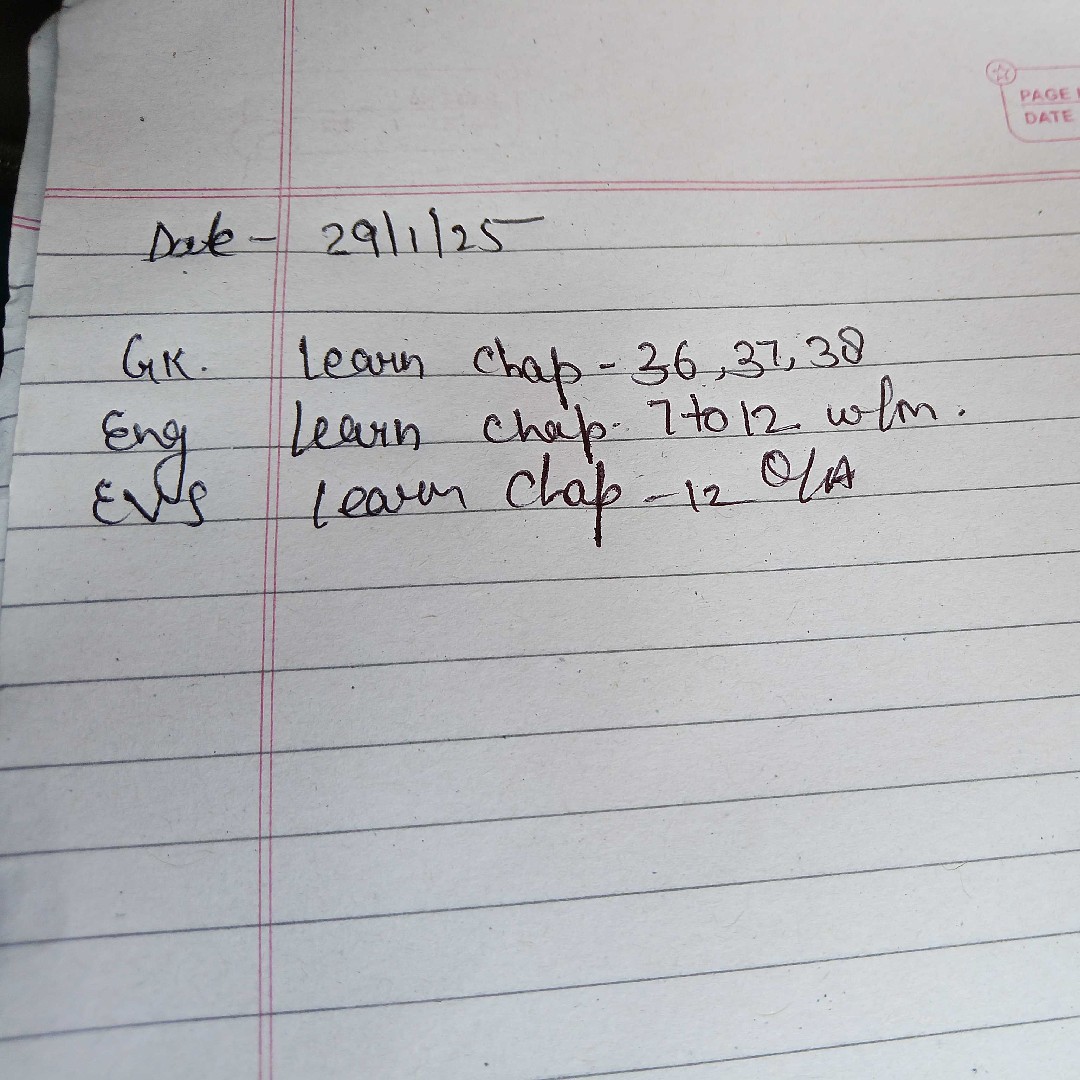 PAGE
DATE
Date - 29/1/25
GK. Learn Chap - 36, 37, 38
Eng Learn Chap. 7 to 12 w/m.
EVS Learn Chap - 12 Q/A